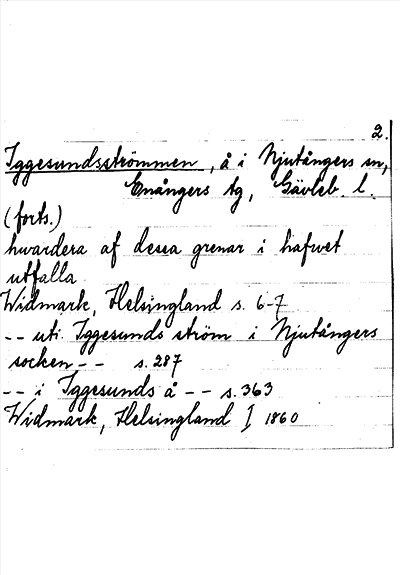 2.
Iggesundsströmmen, å i Njutångers sn,
Enångers tg, Gävleb. l.
(forts.)
hwardera af dessa grenar i hafwet
utfalla
Widmark, Helsingland s. 6-7
-- uti Iggesunds ström i Njutångers
socken -- s. 287
-- i Iggesunds å -- s. 363
Widmark, Helsingland I 1860